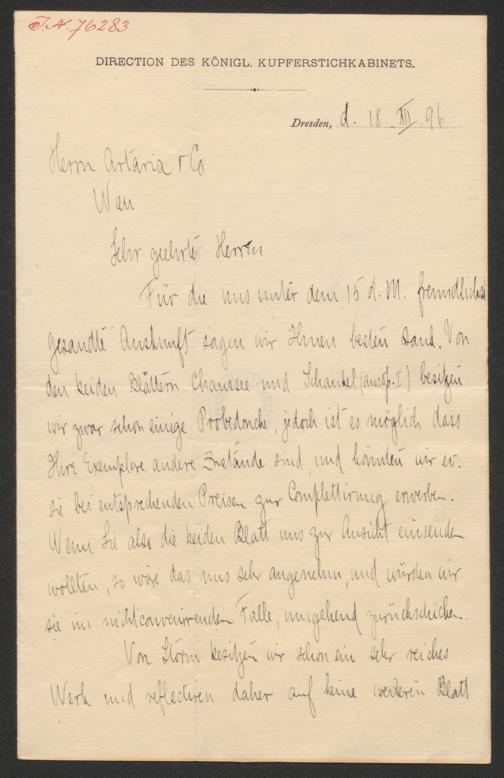 J.N. 76283
DIRECTION DES KÖNIGL. KUPFERSTICHKABINETS.
Dresden, d. 18 XII. 96
Herrn Artaria & Co
Wien
Sehr geehrte Herren
Für die uns unter dem 15 d. M. freundlichst
gesandte Auskunft sagen wir Ihnen besten Dank. Von
den beiden Blättern Chaussee und Schaukel besitzen
wir zwar schon einige Probedrucke, jedoch ist es möglich dass
Ihre Exemplare andere Zustände sind und könnten wir ev.
sie bei entsprechenden Preisen zur Complettirung erwerben.
Wenn Sie also die beiden Blatt uns zur Ansicht einsenden
wollten, so wäre das uns sehr angenehm, und würden wir
sie im nichtconvenirenden Falle, umgehend zurückschicken.
Von Storm besitzen wir schon ein sehr reiches
Werk und reflectiren daher auf keine weiteren Blatt